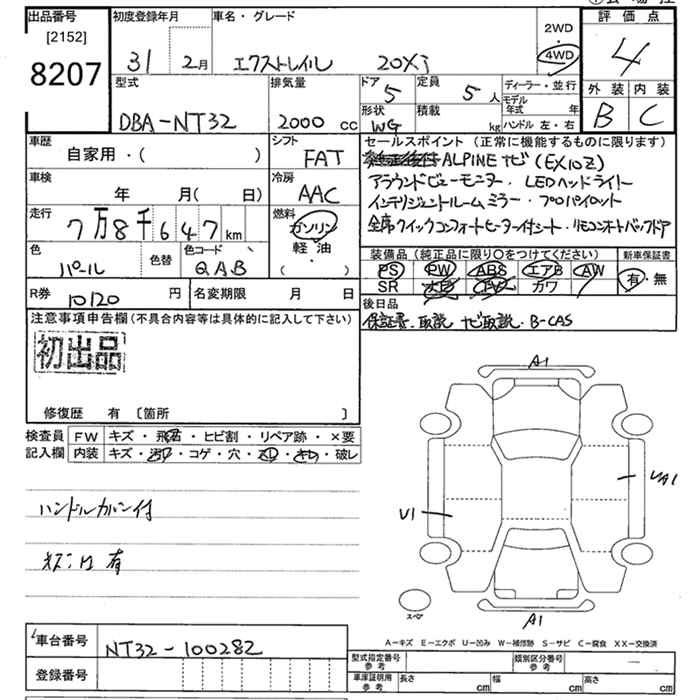 出品番号 初度登録年月 車名・グレード 評価点
[2152] 2WD
・
8207 31年 2月 エクストレイル 20Xi 4WD 4
型式 排気量 ドア 5 定員 5人 ディーラー・並行 外装 内装
モデル年式 年
DBA-NT32 2000cc 形状 WG 積載 kg ハンドル 左・右 B C
車歴 シフト セールスポイント(正常に機能するものに限ります)
自家用・( ) FAT ALPINEナビ(EX10Z)
車検 冷房 アラウンドビューモニター・LEDヘッドライト
年 月( 日) AAC インテリジェントルームミラー・プロパイロット
走行 燃料 全席クイックコンフォートヒーター付シート・リモコンオートバックドア
7万8千647km ガソリン
軽油
( )
色 色替 色コード 装備品(純正品に限り○をつけてください) 新車保証書
パール QAB PS PW ABS エアB AW 有・無
SR カワ
R券 10120円 名変期限 月 日 後日品
注意事項申告欄(不具合内容等は具体的に記入して下さい) 保証書・取説 ナビ取説・B-CAS
初出品
修復歴 有 〔箇所 〕
検査員 FW キズ・飛石・ヒビ割・リペア跡・×要
記入欄 内装 キズ・汚レ・コゲ・穴・・キレ・破レ
A1
UA1
U1
ハンドルカバー付
有
スペア
A1
A-キズ E-エクボ U-凹み W-補修跡 S-サビ C-腐食 XX-交換済
車台番号 NT32-100282
型式指定番号 参考 類別区分番号 参考
登録番号 車庫証明用 参考 長さ cm 幅 cm 高さ cm